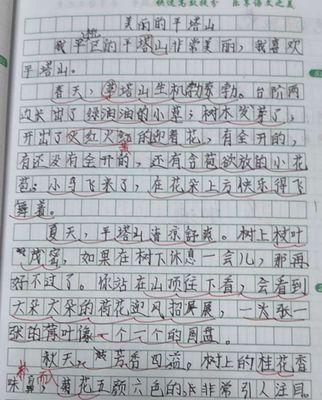 快速高效提分 乐享语文之美
美丽的平塔山
我早已的平塔山非常美丽，我喜欢
平塔山。
春天，平塔山生机勃勃。台阶两
边长出了绿油油的小草；树木发芽了，
开出了火红火红的迎春花，有全开的，
有还没有全开的，还有含苞欲放的小花
苞；小鸟飞来了，在花朵上方快乐得飞
舞着。
夏天，平塔山清凉舒爽。树上枝叶
茂密，如果在树下休息一会儿，那再
好不过了。你站在山顶往下看，会看到
大朵大朵的荷花迎风招展，一张张
的荷叶像一个一个的圆盘。
秋天，芳香四溢。树上的桂花香
味扑鼻而，菊花五颜六色的非常引人注目。